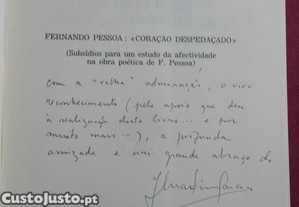 FERNANDO PESSOA: «CORAÇÃO DESPEDAÇADO»
(Subsídios para um estudo da afectividade
na obra poética de F. Pessoa)
com a "velha" admiração, o vivo
reconhecimento (pelo apoio que deu
à realização deste livro... e por
muito mais —), a profunda
amizade e um grande abraço do
CustoJusto.pt